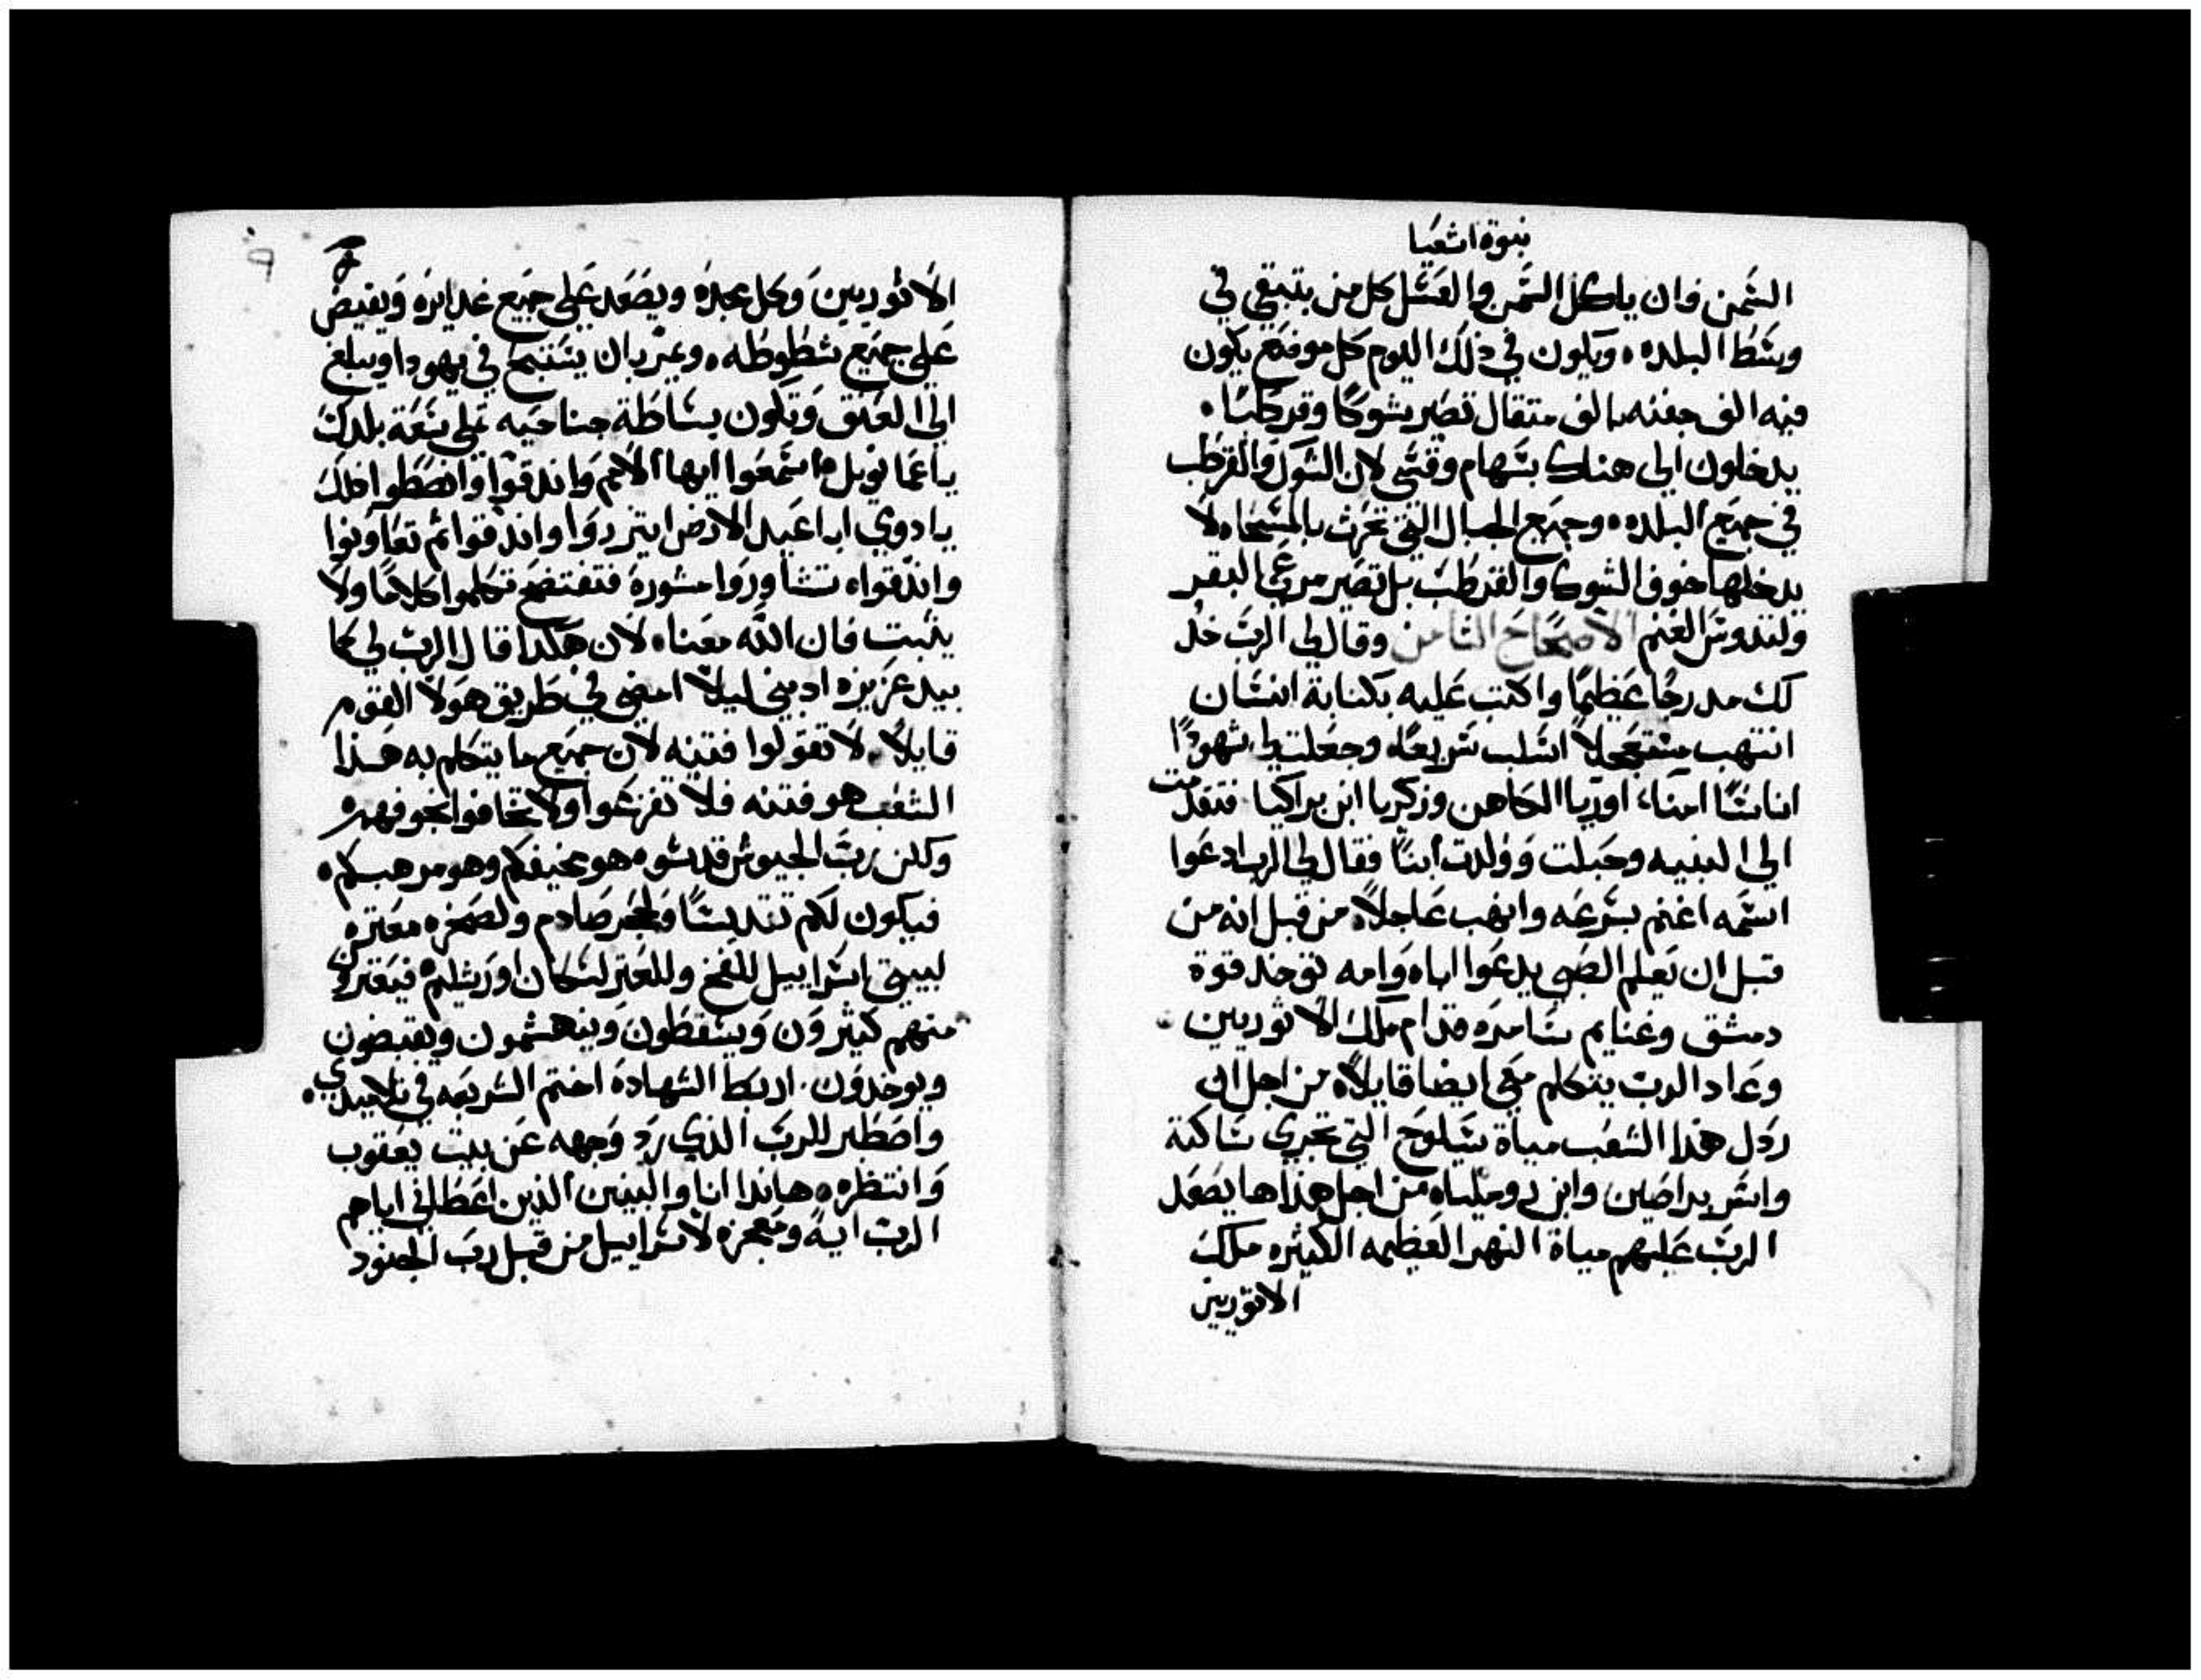 نبوة اشعيا
السمن فان ياكل السمن والعسل كل من يتبقي في
وسط البلده ٠ ويكون في ذلك اليوم كل موضع يكون
فيه الف جفنه بالف مثقال تصير شوكًا وقرطبًا ٠
يدخلون الي هناك بسهام وقسي لان الشوك والقرطب
في جميع البلده ٠ وجميع الجبال التي تحرث بالمسحاه لا
يدخلها خوف الشوك والقرطب بل تصير مرعي البقر
ولتدوس الغنم الاصحاح الثامن وقال لي الرب خذ
لك مدرجًا عظيمًا واكتب عليه بكتابة انسان
انتهب مستعجلاً اسلب سريعًا ٠ وجعلت لي شهودًا
اناسًا امنا ٠ اوريا الكاهن وزكريا ابن براكيا ٠ فتقدمت
الي النبيه وحبلت وولدت ابنًا فقال لي الرب ادعوا
اسمه اغنم بسرعه وانهب عاجلاً ٠ من قبل انه من
قبل ان يعلم الصبي يدعوا اباه وامه توخد قوة
دمشق وغنايم سامره قدام ملك الاثوريين ٠
وعاد الرب يتكلم معي ايضا قايلاً ٠ من اجل ان
ردل هذا الشعب مياة سيلوح التي تجري ساكتة
واسر براصين وابن روميليا ٠ من اجل هذا ها يصعد
الرب عليهم مياة النهر العظيمه الكثيره ملك
الاثوريين
٩
الاثوريين وكل مجده ويصعد علي جميع غدايره ويفيض
علي جميع شطوطه ٠ ويمر بان يتنبح في يهودا ويبلغ
الي العنق وتكون بساطة جناحيه علي سعة بلدك
ياعمانويل ٠ اسمعوا ايها الامم واندقوا وانضغطوا
يا دوي اباعيد الارض اتزروا واندقوا ثم تعاونوا
واندقوا ٠ تشاوروا مشورة فتفتضح تكلموا كلامًا ولا
يثبت فان الله معنا ٠ لان هكدا قال الرب لي كما
بيد عزيزه ادبني ليلا امضي في طريق هولا القوم
قايلاً ٠ لا تقولوا فتنه لان جميع ما يتكلم به هذا
الشعب هو فتنه فلا تفزعوا ولا تخافوا بخوفهم ٠
ولكن رب الجيوش قدسوه هو مخيفكم وهو مرهبكم ٠
فيكون لكم تقديسًا ولحجر صادم ولصخره معتره
لبيتي اسراييل للفخ وللعتر لسكان اورشليم ٠ فيعتر
منهم كثيرون ويسقطون وينهشمون ويقبضون
ويوخدون ٠ اربط الشهادة اختم الشريعه في تلاميدي ٠
واصطبر للرب الذي رد وجهه عن بيت يعقوب
وانتظره ٠ هاندا انا والبنين الذين اعطاني اياهم
الرب اية ومعجزه لاسراييل من قبل رب الجنود